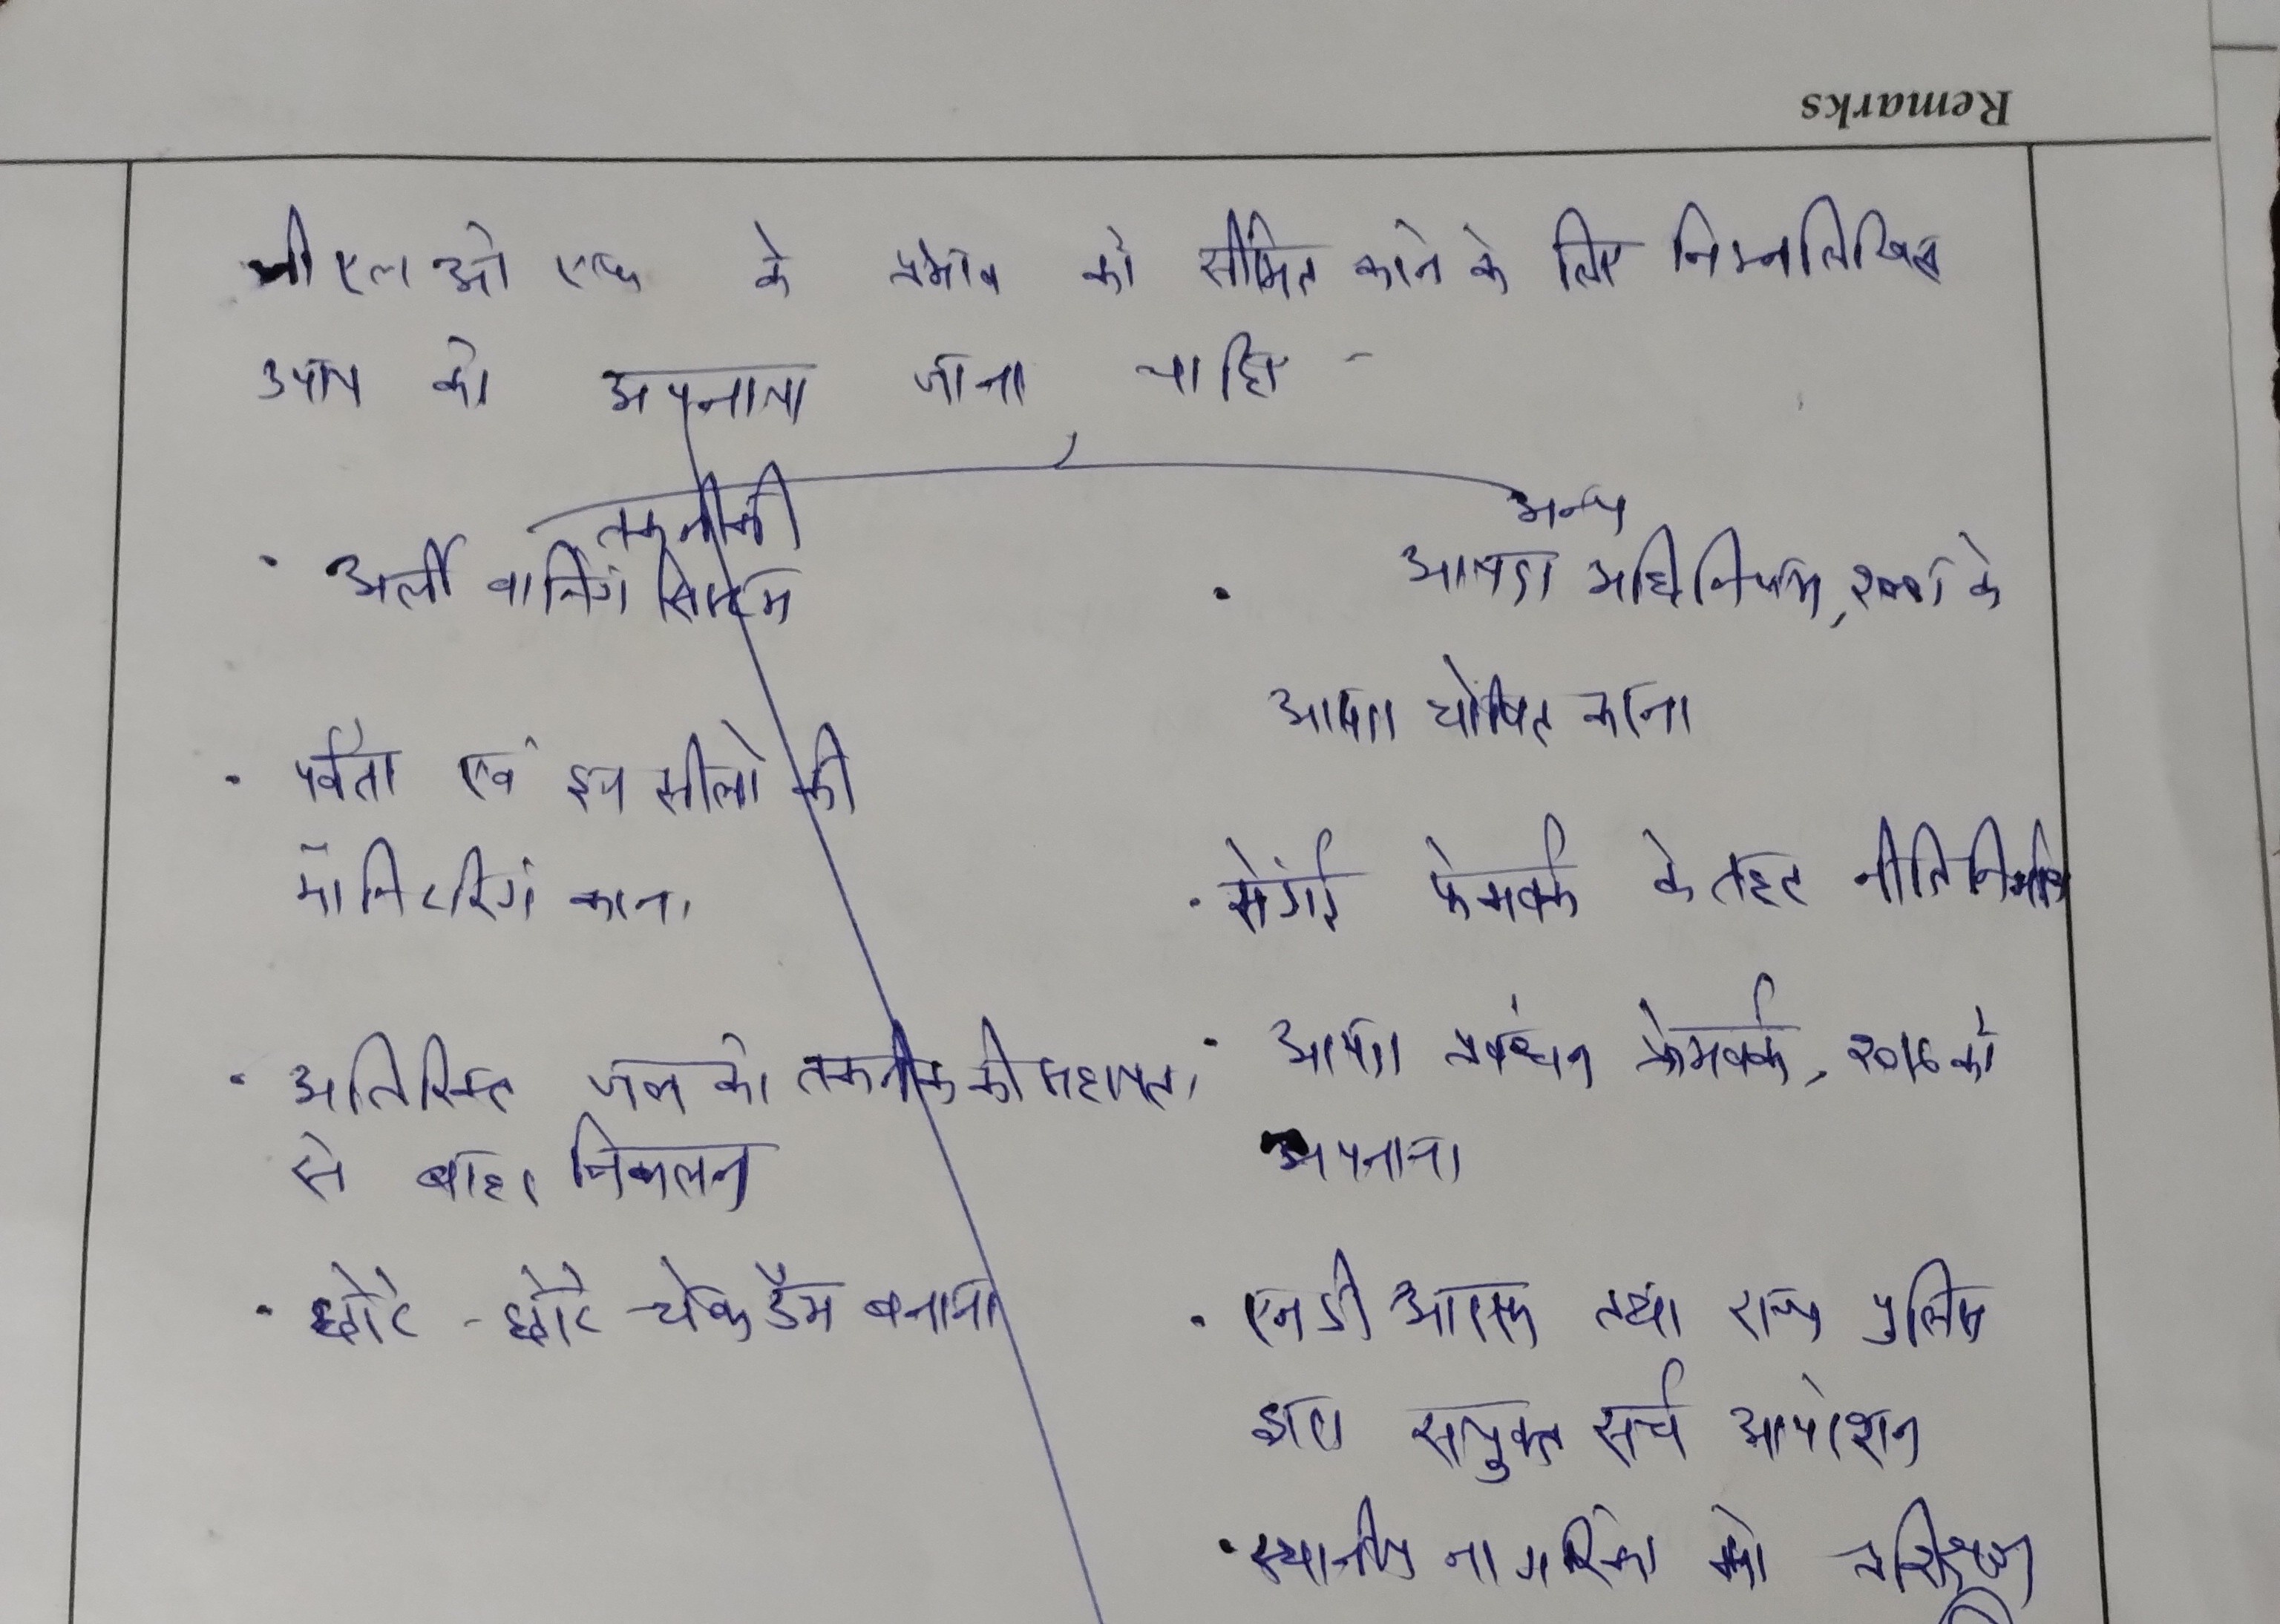 Remarks
जीएलओएफ के प्रभाव को सीमित करने के लिए निम्नलिखित
उपाय को अपनाया जाना चाहिए -
तकनीकी
• अर्ली वार्निंग सिस्टम
• पर्वतों एवं इन झीलों की
मॉनिटरिंग करना
• अतिरिक्त जल को तकनीक की सहायता
से बाहर निकालना
• छोटे - छोटे चेकडैम बनाना
अन्य
• आपदा अधिनियम, 2005 के
आपदा घोषित करना
• सेंडाई फ्रेमवर्क के तहत नीतिनिर्माण
• आपदा प्रबंधन फ्रेमवर्क, 2016 को
अपनाना
• एनडीआरएफ तथा राज्य पुलिस
द्वारा संयुक्त सर्च आपरेशन
• स्थानीय नागरिकों को प्रशिक्षण